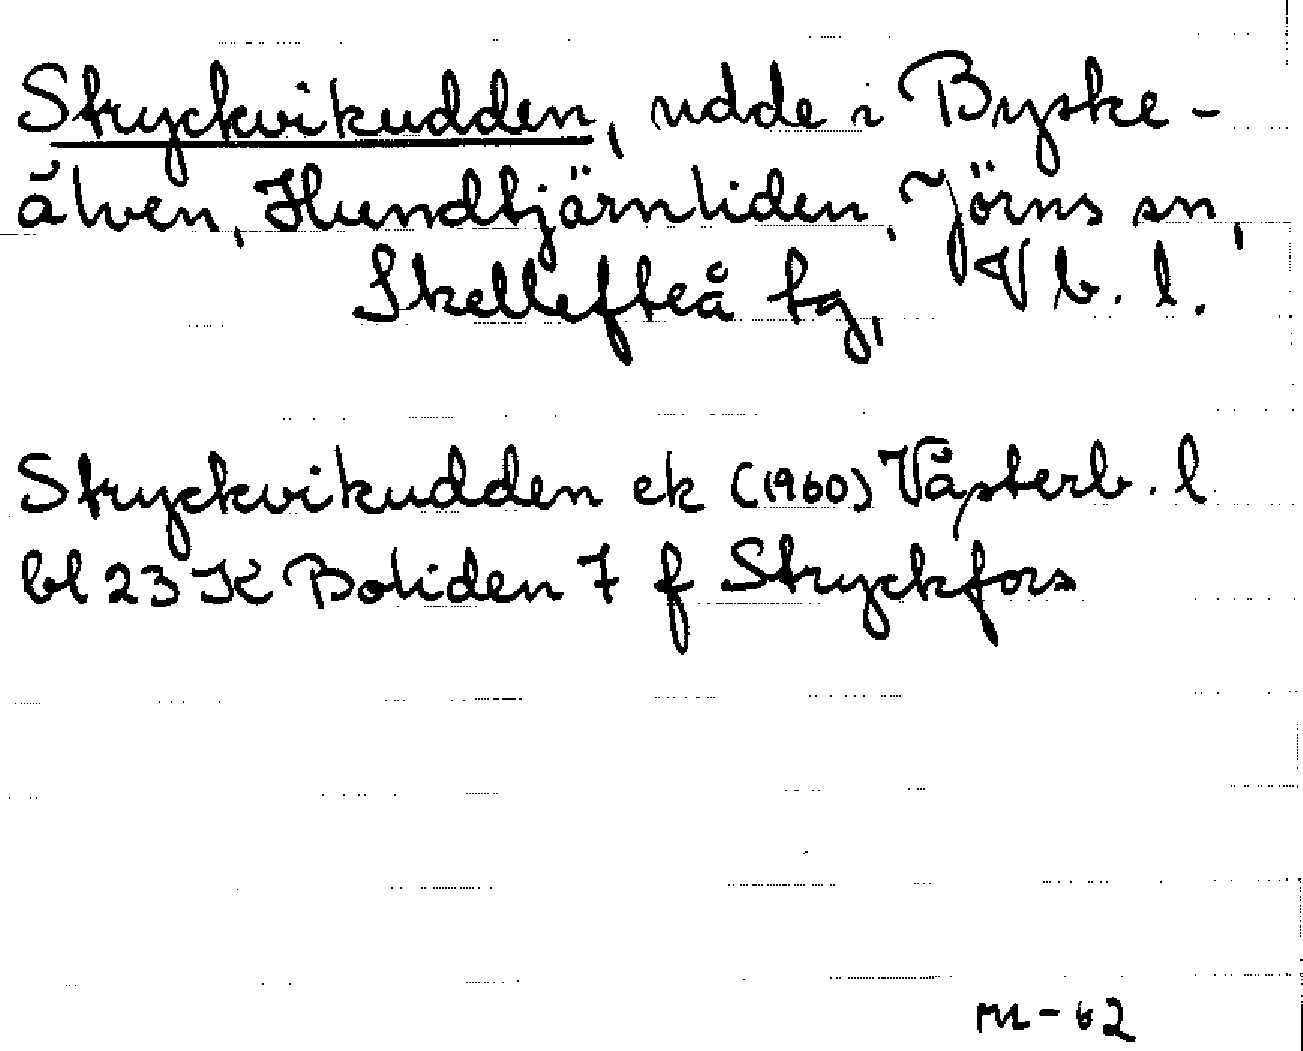 Stryckvikudden, udde i Byske-
älven, Hundtjärnliden, Jörns sn,
Skellefteå tg, Vb. l.
Stryckvikudden ek (1960) Västerb. l
bl 23 K Boliden 7 f Stryckfors
m-62